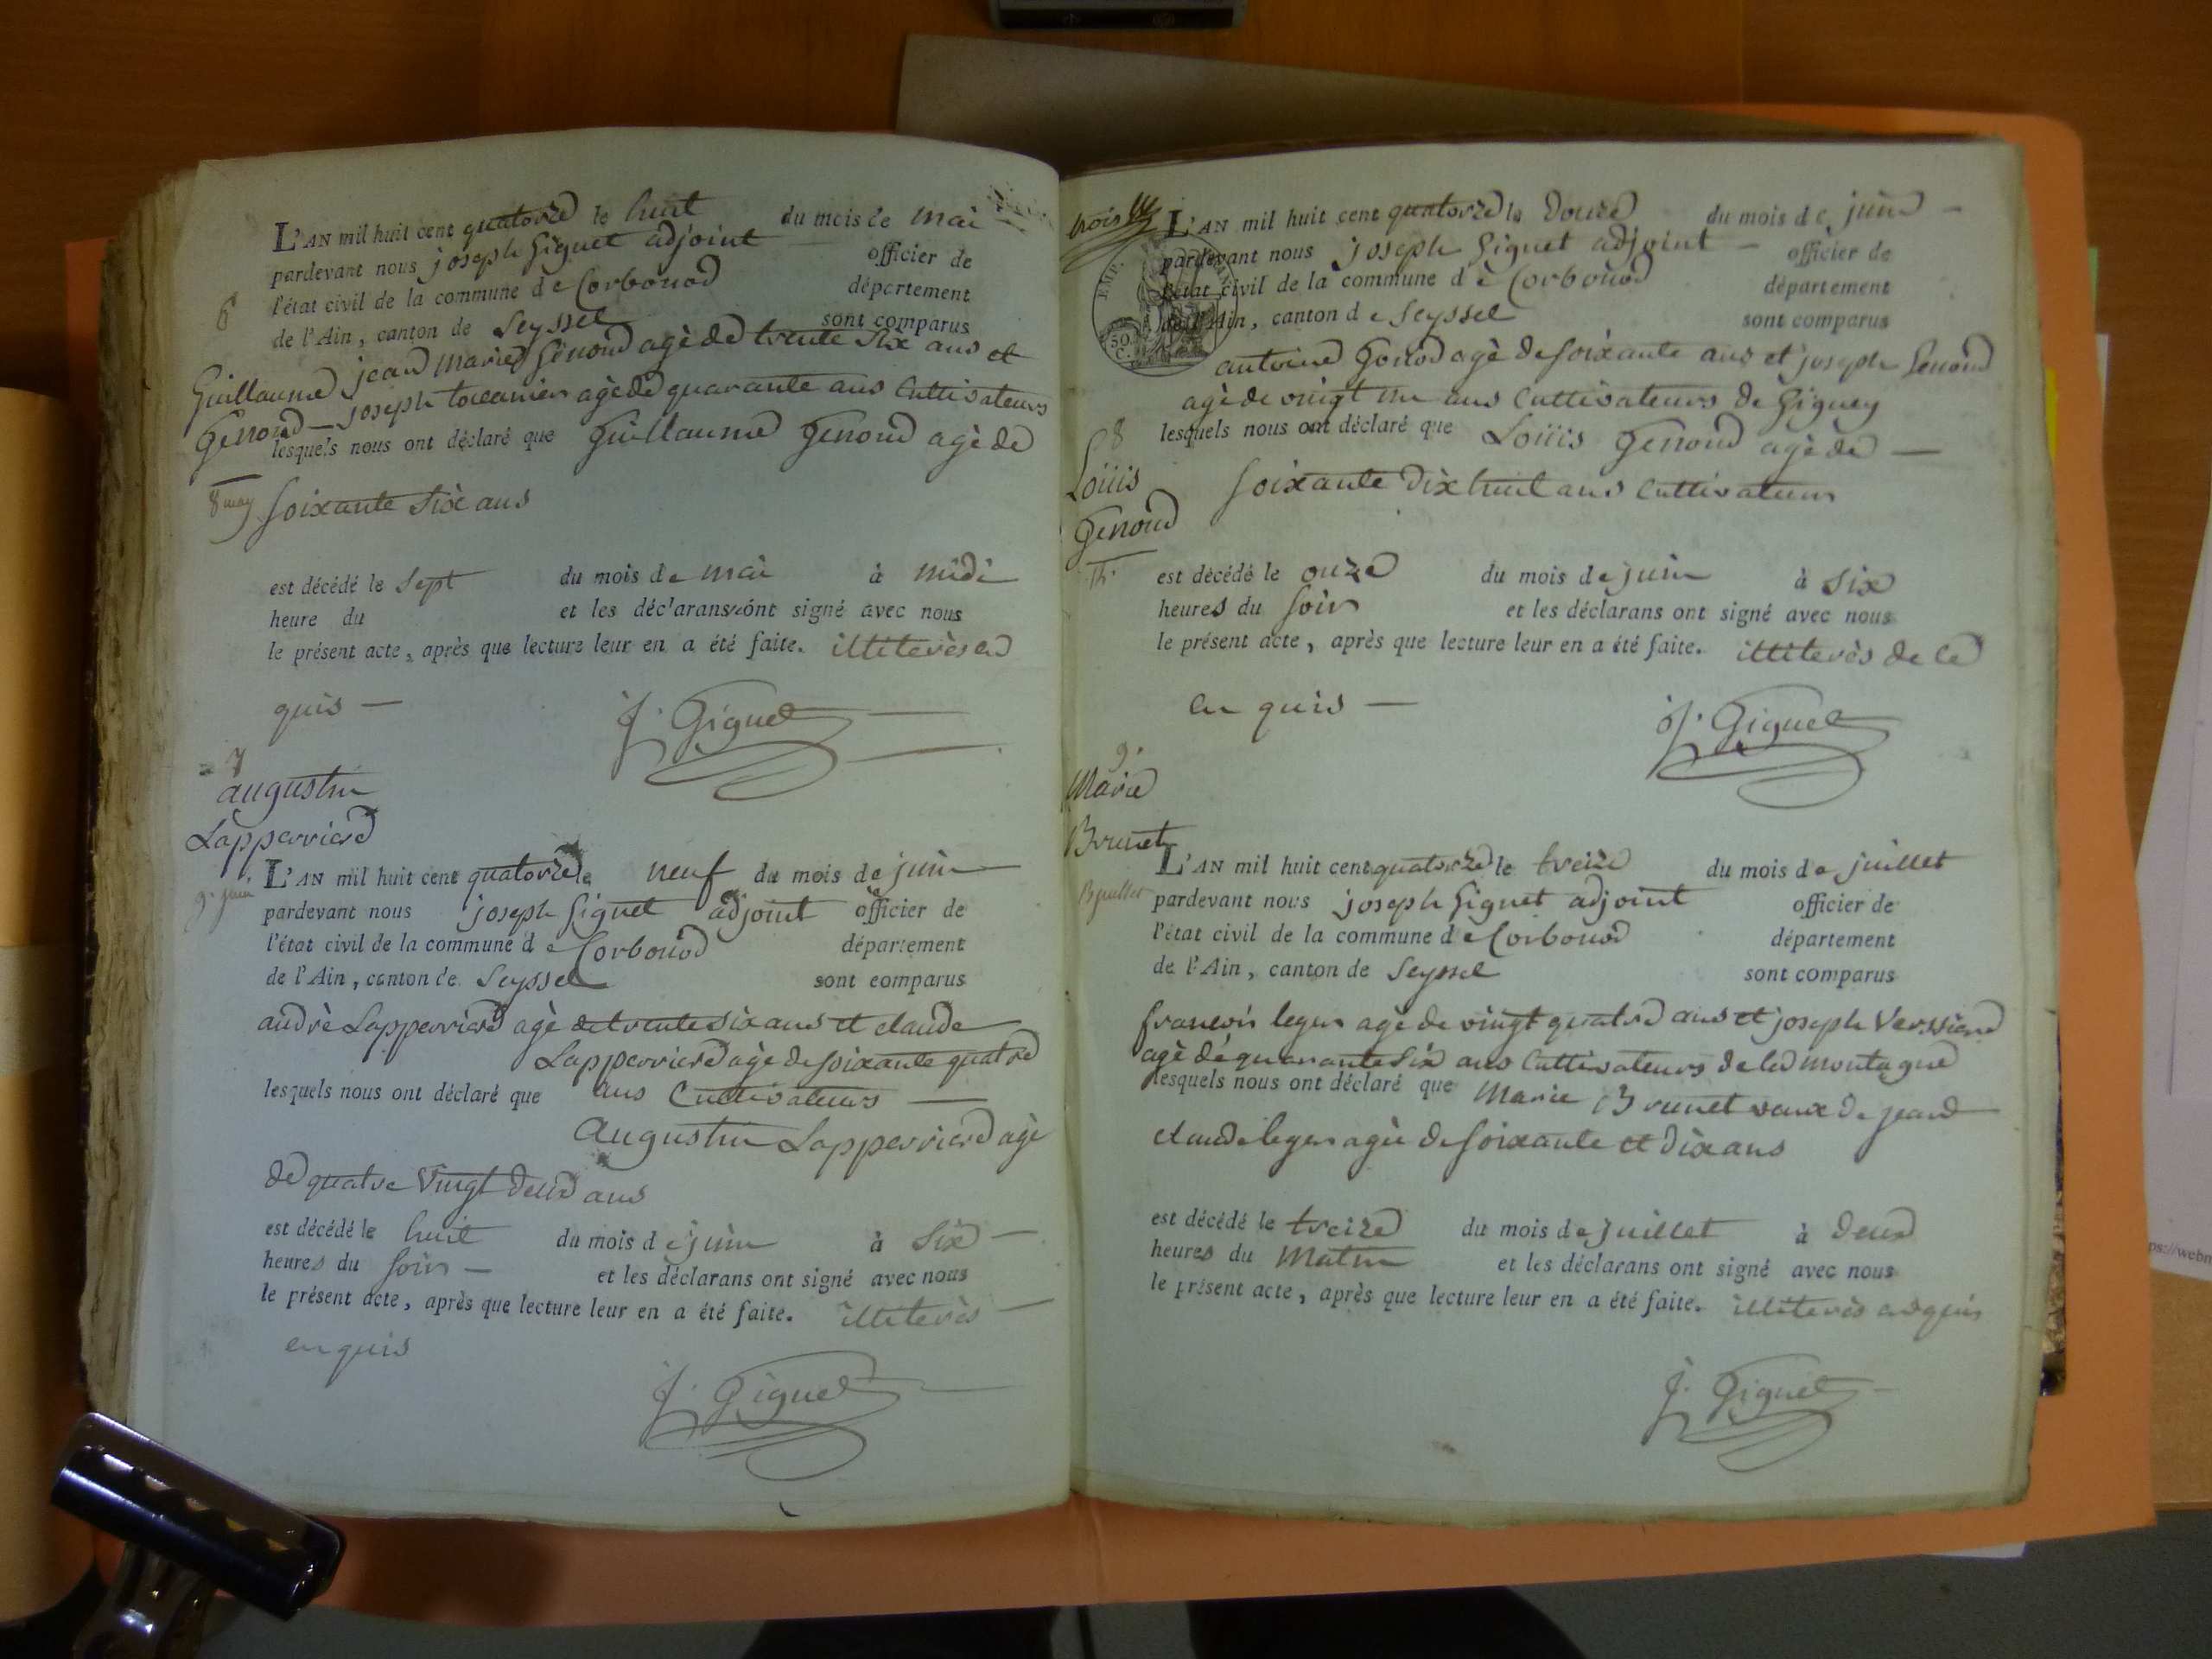 L'AN mil huit cent quatorze le huit du mois de mai
pardevant nous joseph Giguet adjoint officier de
l'état civil de la commune de Corbonod département
de l'Ain, canton de Seyssel sont comparus
6
jean marie Genoud agè de trente six ans et
Guillaume
joseph agè de quarante ans Cultivateurs
Genoud
lesquels nous ont déclaré que Guillaume Genoud agè de
8 may
soixante six ans
est décédé le sept du mois de mai à midi
heure du et les déclarans ont signé avec nous
le présent acte, après que lecture leur en a été faite. illiterès en
quis
J. Giguet
7
augustin
Lapperriere
L'AN mil huit cent quatorze le neuf du mois de juin
9. juin
pardevant nous joseph Giguet adjoint officier de
l'état civil de la commune de Corbonod département
de l'Ain, canton de Seyssel sont comparus
andrè Lapperriere agè de trente six ans et claude
Lapperriere agè de soixante quatre
lesquels nous ont déclaré que ans Cultivateurs
augustin Lapperriere agè
de quatre vingt deux ans
est décédé le huit du mois de juin à six
heures du soir et les déclarans ont signé avec nous
le présent acte, après que lecture leur en a été faite. illiterès
en quis
J. Giguet
trois
L'AN mil huit cent quatorze le douze du mois de juin
pardevant nous joseph Giguet adjoint officier de
l'état civil de la commune de Corbonod département
de l'Ain, canton de Seyssel sont comparus
EMP. FRAN
50 C.
antoine Gonod agè de soixante ans et joseph Genoud
agè de vingt un ans Cultivateurs de Gignez
lesquels nous ont déclaré que Loüis Genoud agè de
8
Loüis
Genoud
soixante dix huit ans Cultivateur
est décédé le onze du mois de juin à six
heures du soir et les déclarans ont signé avec nous
le présent acte, après que lecture leur en a été faite. illiterès de ce
en quis
J. Giguet
9.
Marie
Brunet
L'AN mil huit cent quatorze le treize du mois de juillet
13 juillet
pardevant nous joseph Giguet adjoint officier de
l'état civil de la commune de Corbonod département
de l'Ain, canton de Seyssel sont comparus
francois leger agè de vingt quatre ans et joseph
agè de quarante six ans Cultivateurs de la montagne
lesquels nous ont déclaré que Marie Brunet veuve de jean
claude leger agèe de soixante et dix ans
est décédé le treize du mois de juillet à deux
heures du matin et les déclarans ont signé avec nous
le présent acte, après que lecture leur en a été faite. illiterès enquis
J. Giguet